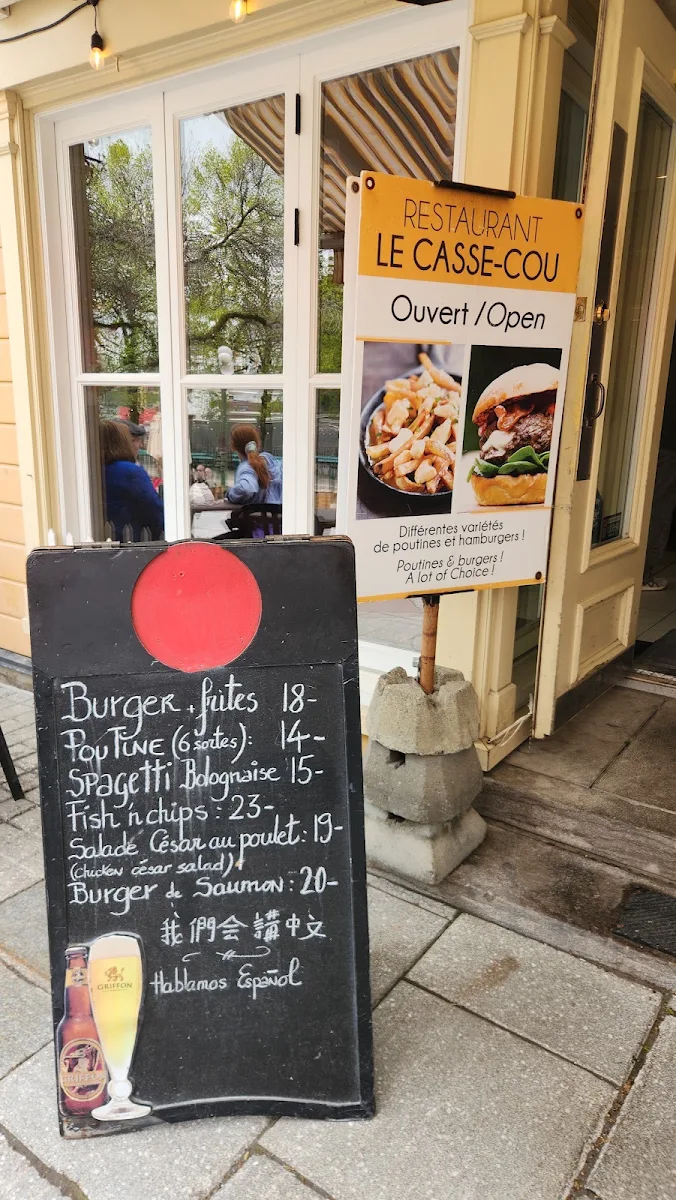 RESTAURANT
LE CASSE-COU
Ouvert / Open
Différentes variétés
de poutines et hamburgers !
Poutines & burgers !
A lot of Choice !
Burger + frites 18-
POUTINE (6 sortes): 14-
SPAGETTI Bolognaise 15-
Fish 'n chips : 23-
Salade César au poulet : 19-
(chicken césar salad)
Burger de Saumon : 20-
我們会講中文
Hablamos Español
GRIFFON
GRIFFON